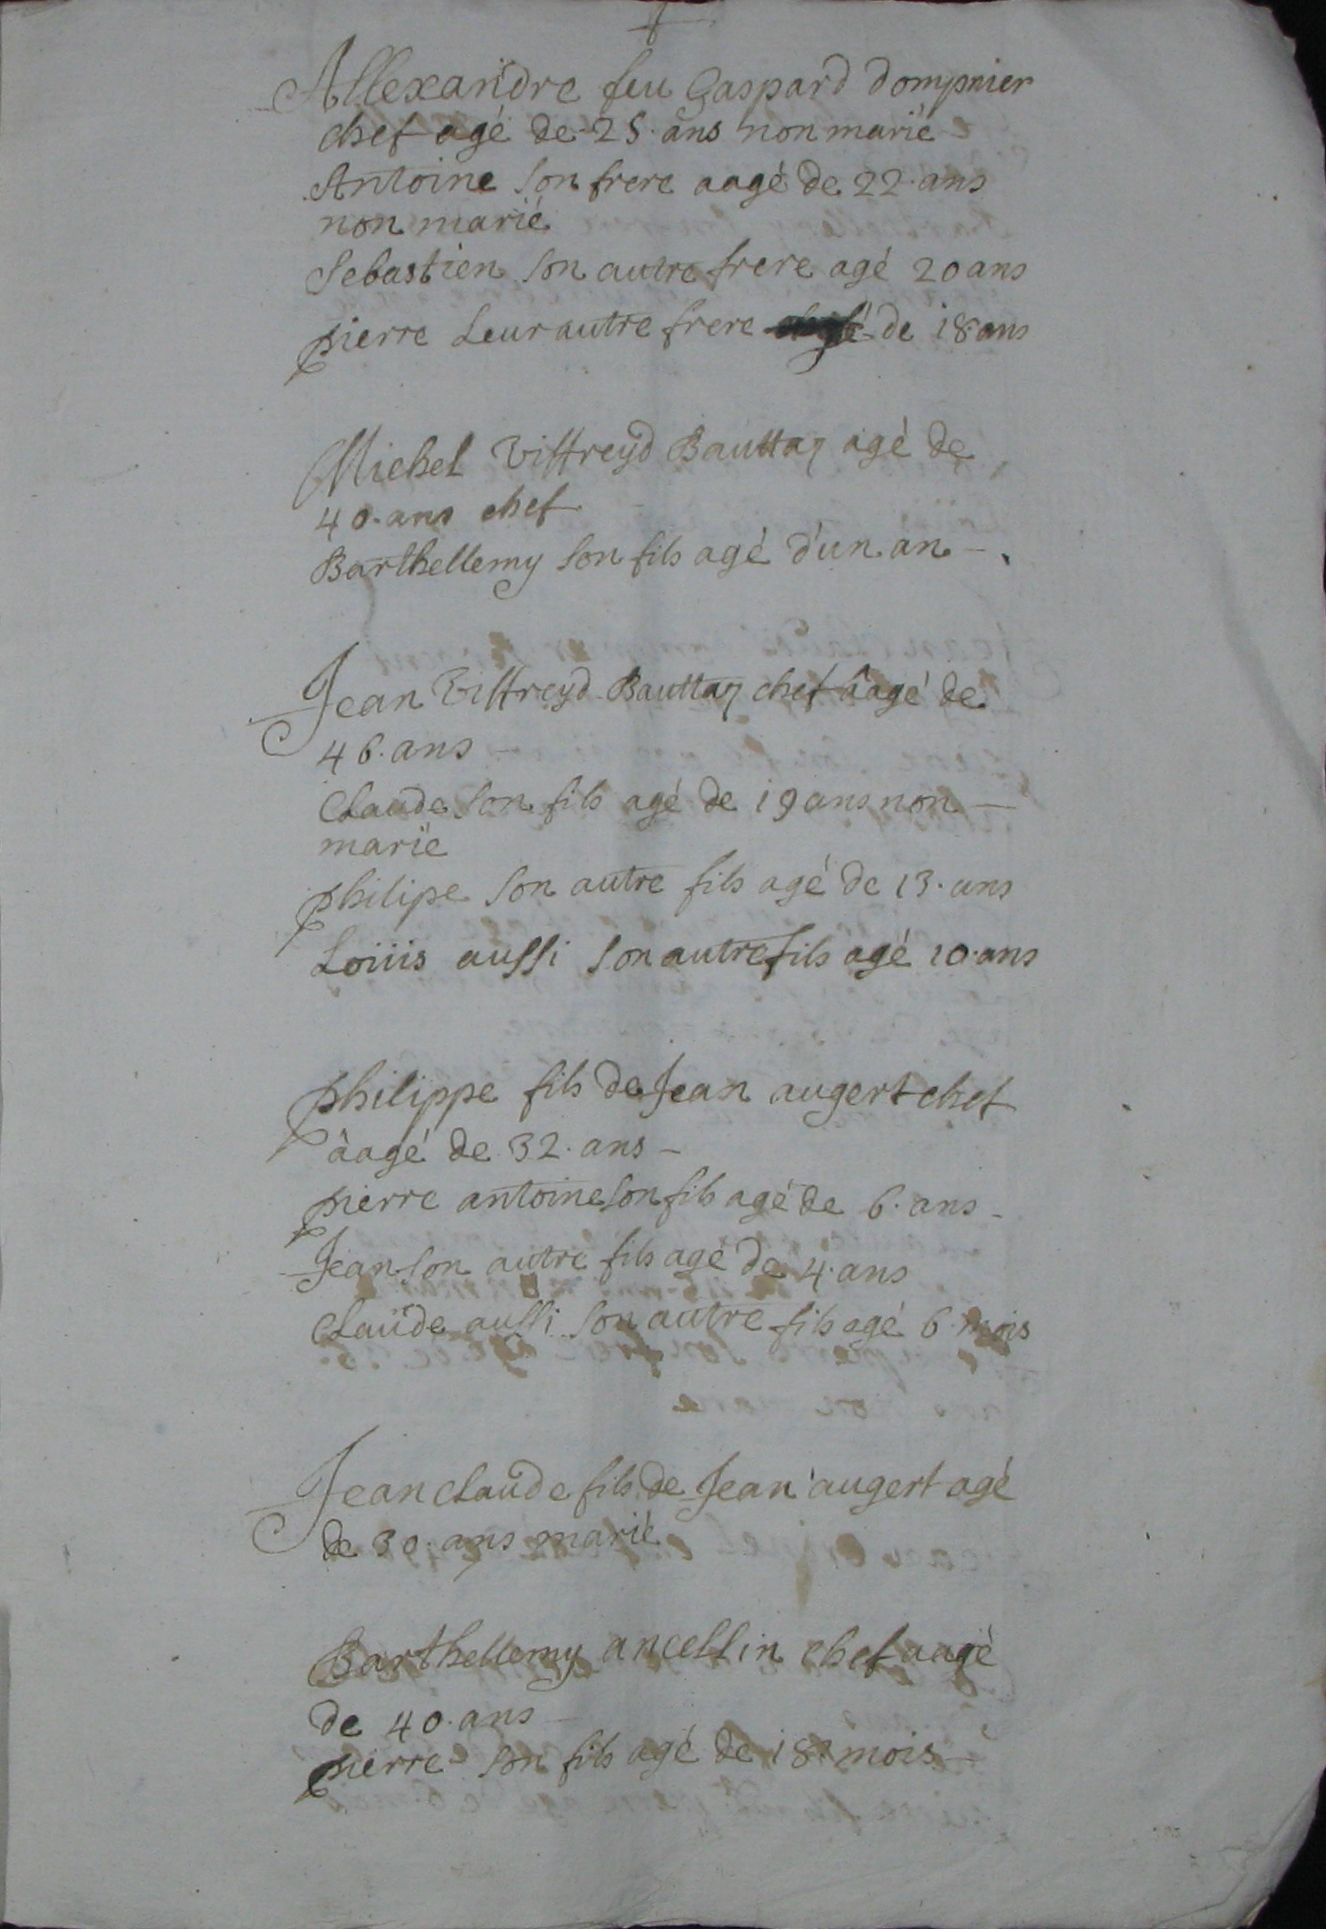 Allexandre feu Gaspard dompnier
chef agé de 25. ans non marié
Antoine son frere aagé de 22. ans
non marié
Sebastien son autre frere agé 20 ans
pierre Leur autre frere agé de 18. ans
Michel Viffreyd Bauttaz agé de
40. ans chef
Barthellemy son fils agé d'un an
Jean Viffreyd Bauttaz chef âagé de
46. ans
Claude son fils agé de 19 ans non
marié
philipe son autre fils agé de 13. ans
Loüis aussi son autre fils agé 10. ans
philippe fils de Jean augert chef
àagé de 32. ans
pierre antoine son fils agé de 6. ans
Jean son autre fils agé de 4. ans
Claude aussi son autre fils agé 6. mois
Jean claude fils de Jean augert agé
de 30. ans marié
Barthellemy ancellin chef aagé
de 40. ans
pierre son fils agé de 18. mois